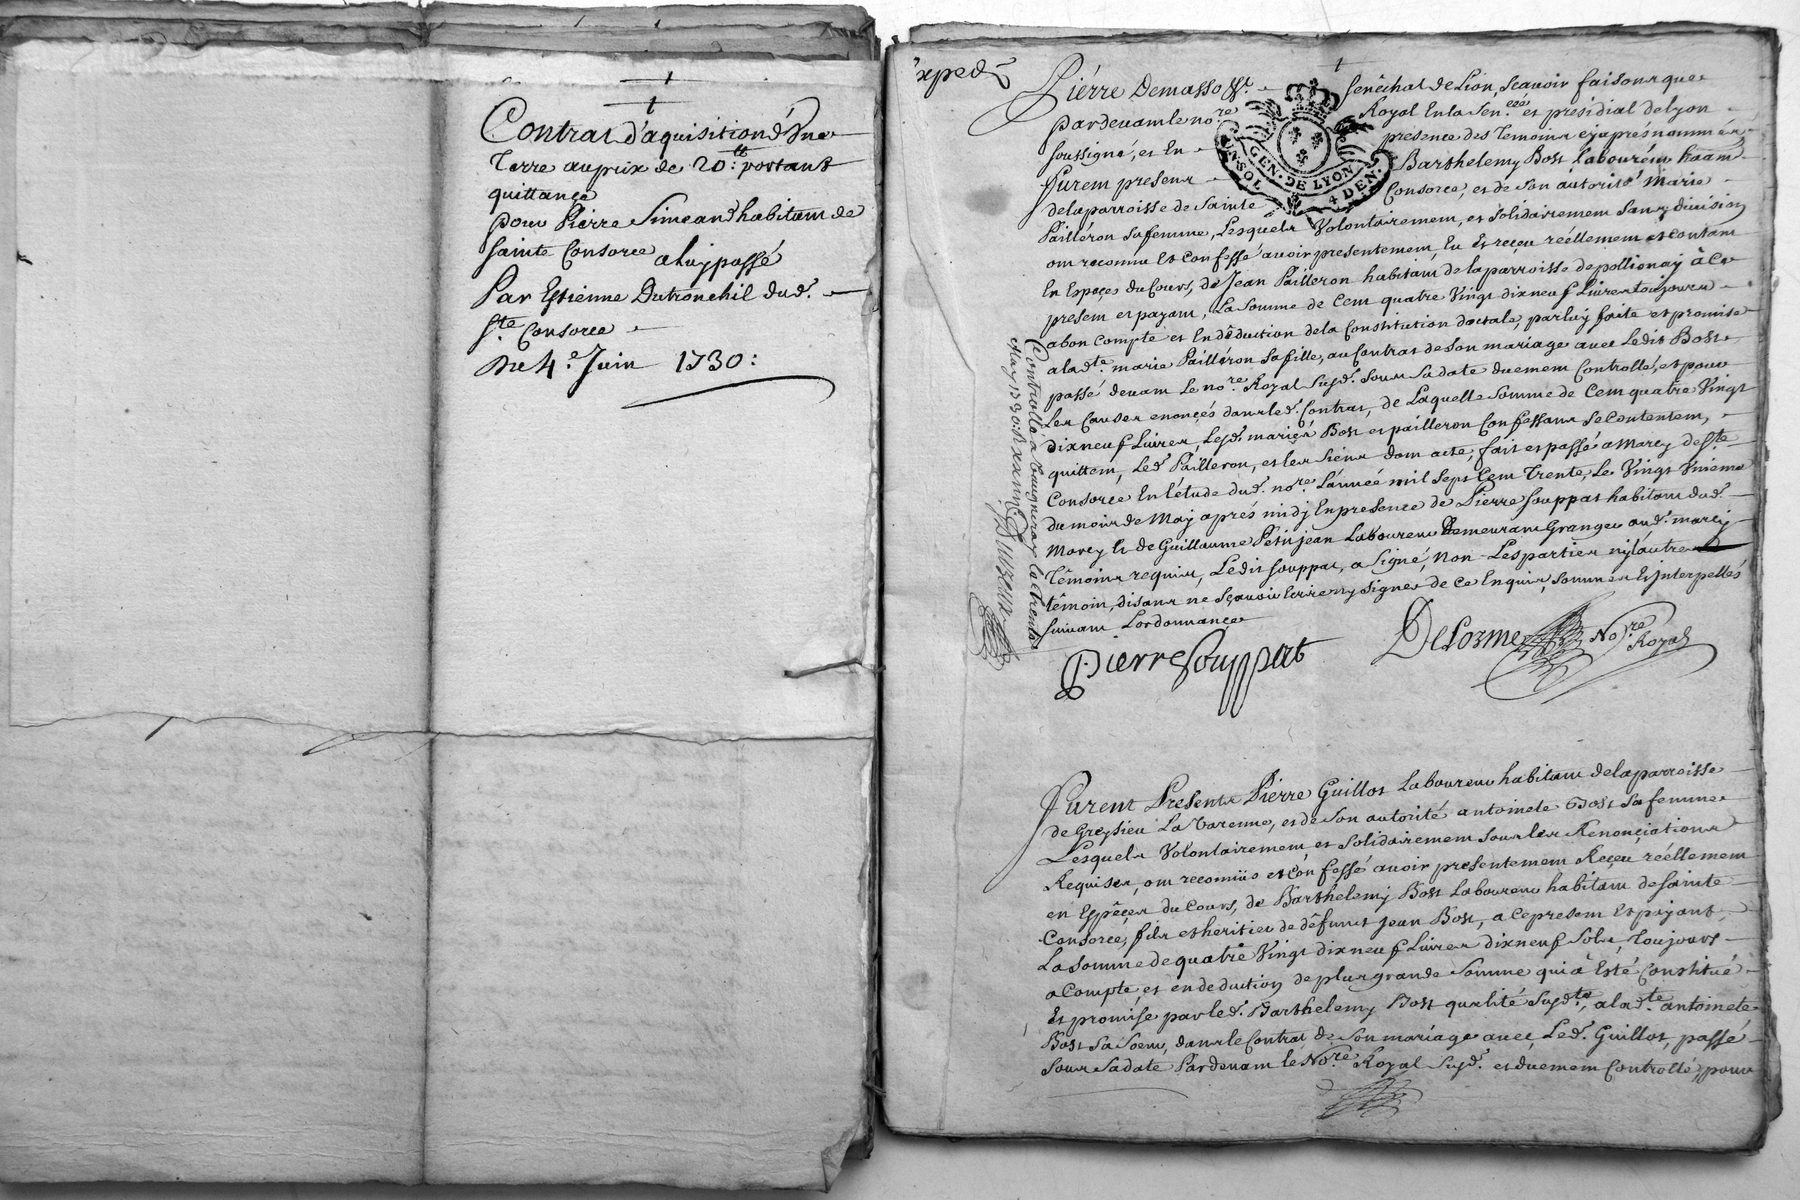 Contrat d'aquisition d'Une
Terre au prix de 20:tt portant
quittance
pour Pierre Simeand habitant de
Sainte Consorce a luy passé
Par Estienne Dutronchil dud.
Ste Consorce
Du 4e Juin 1730:
Expedé
Pierre Demasso Senêchal de Lion, Sçavoir faisons que
pardevam le nore Royal En la Senée et présidial de Lyon
soussigné, et En presence des Temoins cy aprés nommés
furem presens Barthelemy Bost Laboureur habitam
de la parroisse de Sainte Consorce, et de Son autorité Marie
Pailléron Sa femme, Lesquels Volontairemem, et Solidairemem Sans division
om reconnu Et Confessé avoir presentemem Eu Et reçeu réellemem et contam
En Espeçes du Cours, de Jean Pailleron habitam de la parroisse de pollionaÿ à Ce
presem et payam, La Somme de Cem quatre Vingt dixneuf Livres toujours
a bon compte et En dêduction de la Constitution dottale, par luy faite et promise
a la dte marie Pailléron Sa fille, au Contrat de Son mariage avec Ledit Bost
passé devam Le nore Royal Susd. Sous Sa date duemem Controllé, et pour
Les Causes enonçés dans led. Contrat, de Laquelle Somme de Cem quatre Vingt
dixneuf Livres, Lesd. mariés Bost et pailleron Confessans Se Contentem,
quittem, Led. Pailleron, et les Siens dom acte, fait et passé a Marcy de Ste
Consorce En l'étude dud. nore L'année mil Sept Cem Trente, Le Vingt Unieme
du mois de Maÿ aprés midj En presence de Pierre Souppat habitam dud.
Marcy Et de Guillaume Petitjean Laboureur Demeuram Granger aud. marcy
Têmoins requis, Ledit Souppat, a Signé, Non Les parties nÿ l'autre
têmoin, disans ne Sçavoir Ecrire nÿ Signer de Ce Enquis, Sommés Et Interpellés
Suivam L'ordonnançe
Controllé a Vaugneray le trente
May 1730: R
GEN. DE LYON
DEN.
Pierre Souppat
Delorme Nore Royal
Furent Presents Pierre Guillot Laboureur habitam de la parroisse
de Greysieu La Varenne, et de Son autorité antoinete Bost Sa femme
Lesquels Volontairemem, et Solidairemem Sous les Renonçiations
Requises, om reconnûs et Confessé avoir presentemem Reçeu réellemem
en Espêçes du Cours, de Barthelemÿ Bost Laboureur habitam de Sainte
Consorce, fils et heritier de dêfunct Jean Bost, a Ce presem Et payant,
La Somme de quatre Vingt dixneuf Livres dixneuf Sols, Toujours
a Compte, et en deduction de plus grande Somme qui a Esté Constitué
Et promise par led. Barthelemy Bost qualité Susdte a la dte antoinete
Bost Sa Soeur, dans le Contrat de Son mariage avec, Led. Guillot, passé
Sous Sa date Pardevam le Nore Royal Susd. et duemem Controllé, pour